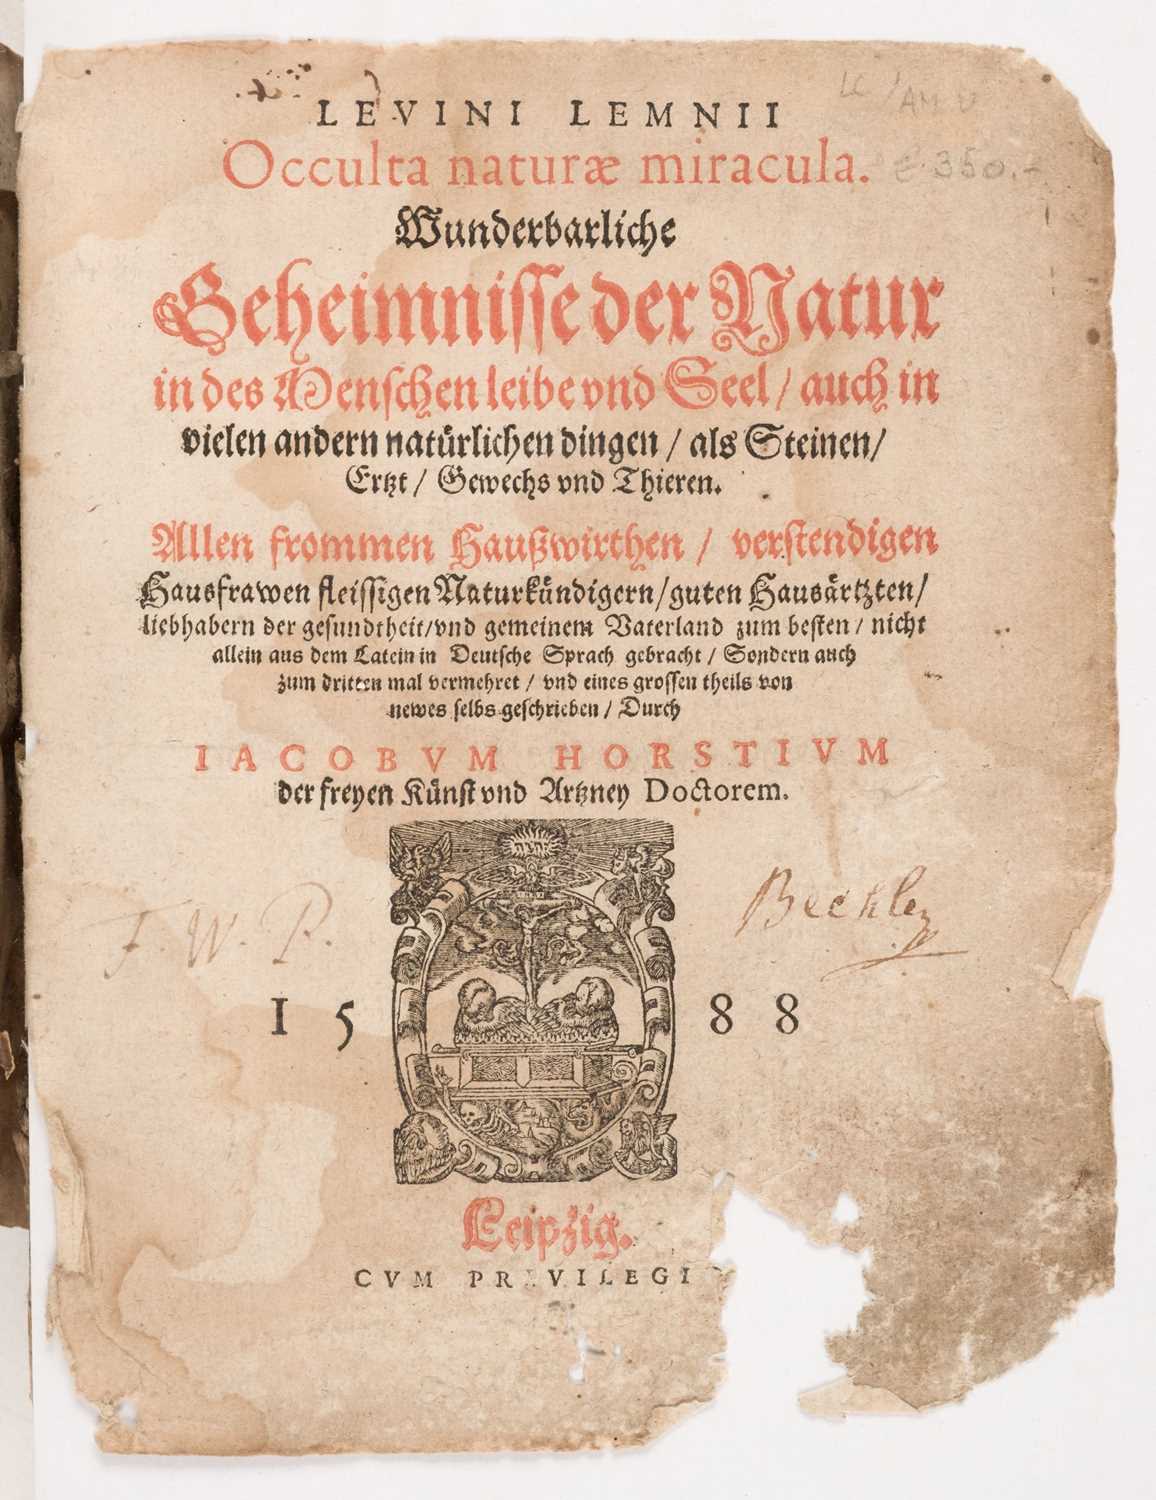 LEVINI LEMNII
Occulta naturæ miracula.
€ 350.-
Wunderbarliche
Geheimnisse der Natur
in des Menschen leibe vnd Seel / auch in
vielen andern natürlichen dingen / als Steinen /
Ertzt / Gewechs vnd Thieren.
Allen frommen Haußwirthen / verstendigen
Hausfrawen fleissigen Naturkündigern / guten Hausärtzten /
liebhabern der gesundtheit / vnd gemeinem Vaterland zum besten / nicht
allein aus dem Latein in Deutsche Sprach gebracht / Sondern auch
zum dritten mal vermehret / vnd eines grossen theils von
newes selbs geschrieben / Durch
IACOBVM HORSTIVM
der freyen Künst vnd Artzney Doctorem.
F. W. P.
1588
Leipzig.
CVM PRIVILEGI